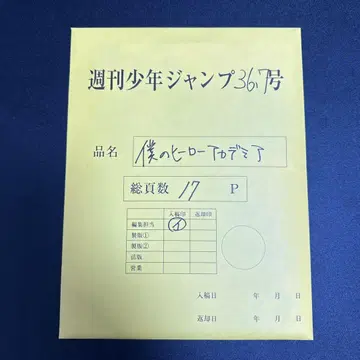 週刊少年ジャンプ36,7号
品名 僕のヒーローアカデミア
総頁数 17 P
入稿印 返却印
編集担当 イ
製版①
製版②
活版
営業
入稿日 年 月 日
返却日 年 月 日